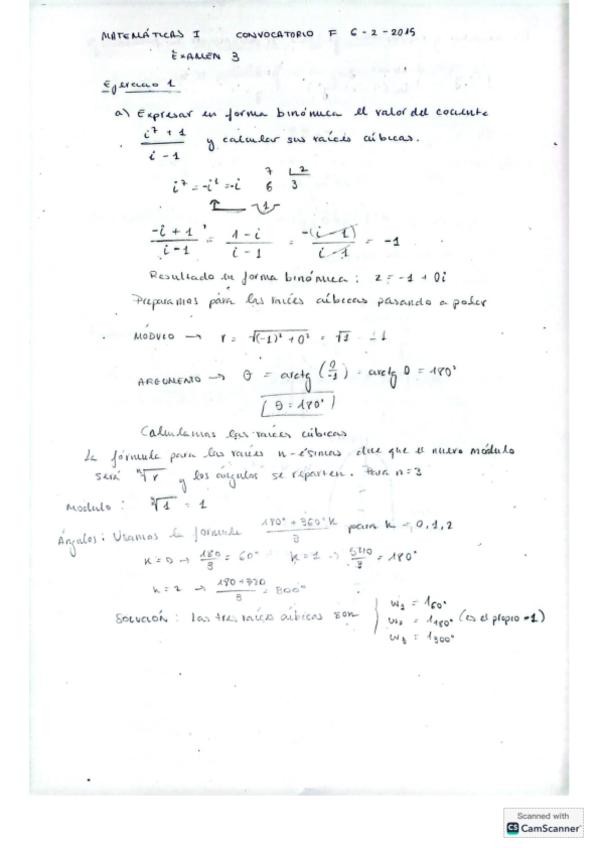 MATEMÁTICAS I CONVOCATORIO F 6-2-2015
EXAMEN 3
Ejercicio 1
a) Expresar en forma binómica el valor del cociente
(i⁷ + 1)/(i - 1) y calcular sus raíces cúbicas.
i⁷ = -i¹ = -i 7 | 2
6 3
1
(-i + 1)/(i - 1) = (1 - i)/(i - 1) = -(i - 1)/(i - 1) = -1
Resultado en forma binómica: z = -1 + 0i
Preparamos para las raíces cúbicas pasando a polar
MÓDULO → r = √((-1)² + 0²) = √1 = 1
ARGUMENTO → θ = arctg (0/-1) = arctg 0 = 180°
[θ = 180°]
Calculamos las raíces cúbicas
La fórmula para las raíces n-ésimas dice que el nuevo módulo
será ⁿ√r y los ángulos se reparten. Para n=3
Modulo: ³√1 = 1
Ángulos: Usamos la formula (180° + 360°k)/3 para k = 0, 1, 2
k = 0 → 180/3 = 60° k = 1 → 540/3 = 180°
k = 2 → (180+720)/3 = 300°
SOLUCIÓN: las tres raíces cúbicas son { w₁ = 1₆₀°
w₂ = 1₁₈₀° (es el propio -1)
w₃ = 1₃₀₀°
Scanned with
CS CamScanner